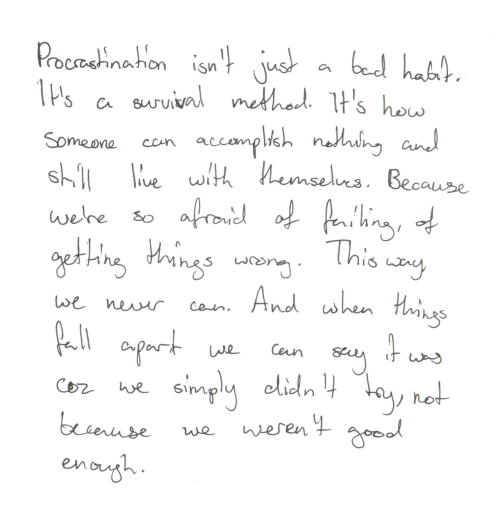 Procrastination isn't just a bad habit.
It's a survival method. It's how
someone can accomplish nothing and
still live with themselves. Because
we're so afraid of failing, of
getting things wrong. This way
we never can. And when things
fall apart we can say it was
coz we simply didn't try, not
because we weren't good
enough.